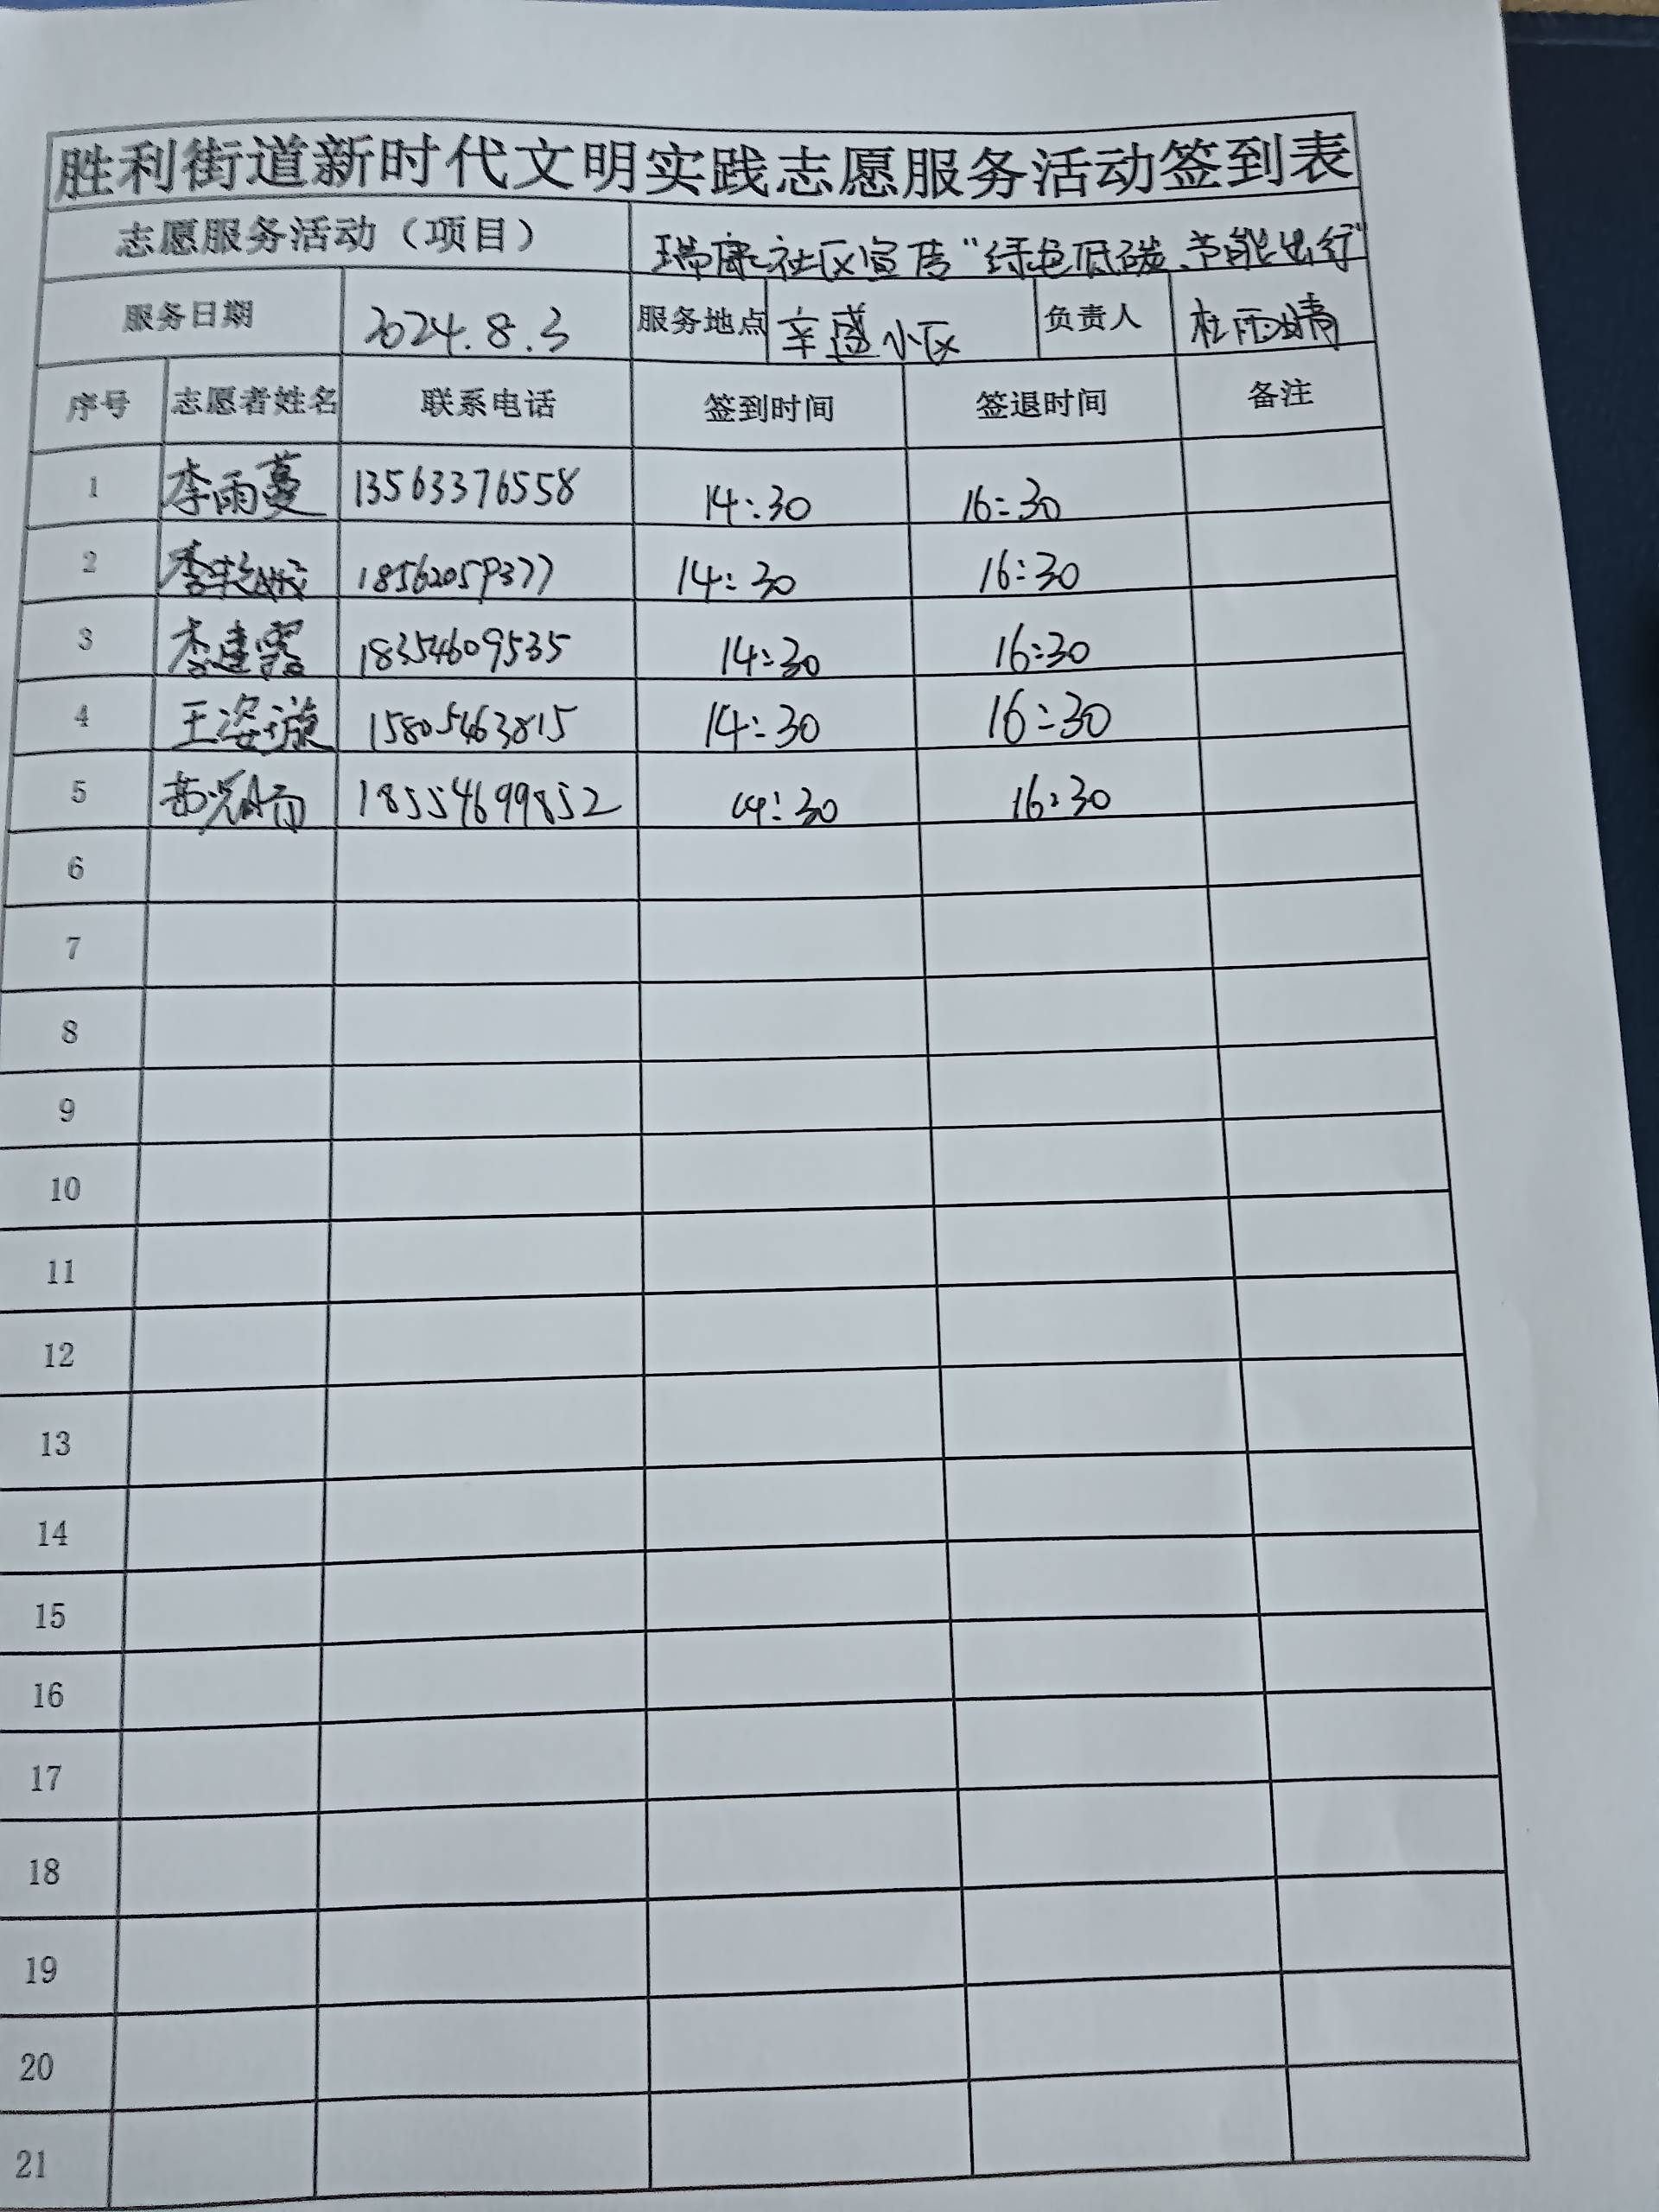 胜利街道新时代文明实践志愿服务活动签到表
志愿服务活动（项目） 瑞康社区宣传“绿色低碳、节能出行”
服务日期 2024.8.3 服务地点 辛盛小区 负责人 杜雨晴
序号 志愿者姓名 联系电话 签到时间 签退时间 备注
1 李雨蔓 13563376558 14:30 16:30
2 李 18562059377 14:30 16:30
3 李建霞 18354609535 14:30 16:30
4 王姿璇 15805463815 14:30 16:30
5 18554699852 14:30 16:30
6
7
8
9
10
11
12
13
14
15
16
17
18
19
20
21